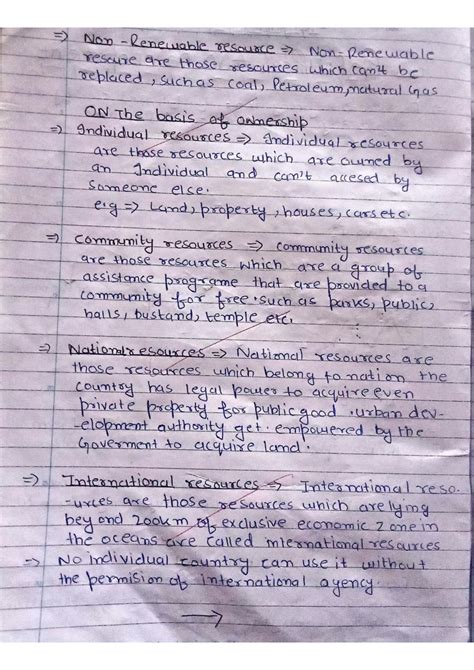 => Non-Renewable resource => Non-Renewable
rescure are those resources which can't be
replaced, such as coal, Petroleum, natural Gas
ON The basis of ownership
=> Individual resources => Individual resources
are those resources which are owned by
an Individual and can't accesed by
someone else.
e.g => Land, property, houses, cars etc.
=> Community resources => community resources
are those resources which are a group of
assistance programe that are provided to a
community for free. such as parks, public,
halls, bustand, temple etc.
=> National resources => National resources are
those resources which belong to nation the
country has legal power to acquire even
private property for public good. urban dev-
-elopment authority get empowered by the
Goverment to acquire land.
=> International resources => International reso-
-urces are those resources which are lying
beyond 200km of exclusive economic zone in
the oceans are called international resources
=> No individual country can use it without
the permision of international agency.
→